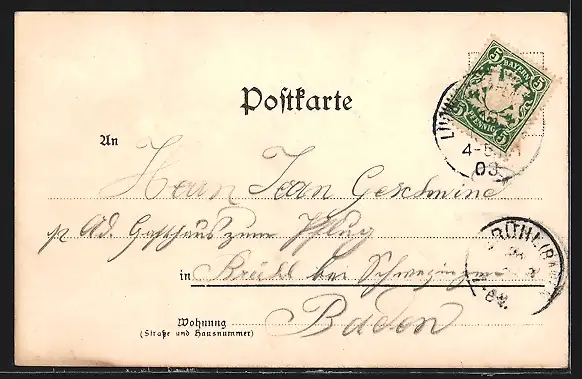 5 BAYERN 5
5 PFENNIG 5
Postkarte
4-5
03
An
Herrn Jean Geschwine
p. Ad. Gasthaus zum Pflug
in Brühl bei Schwezingen
Baden
Wohnung
(Straße und Hausnummer)